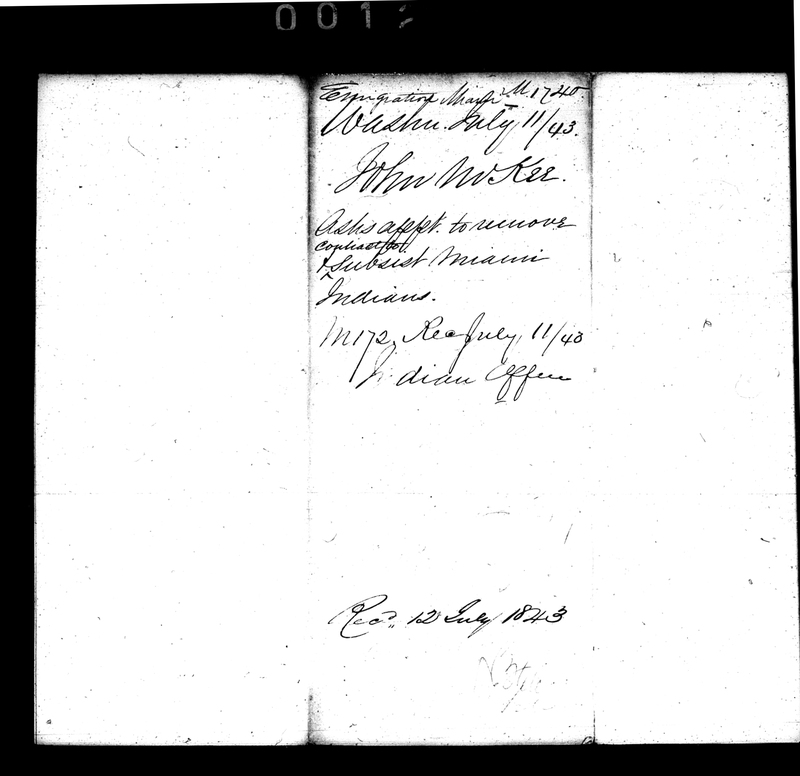 001
Emigration M. 1740
Washn. July 11/43.
John McKee.
Asks appt. to remove
contract to
& Subsist Miami
Indians.
M172 Rec July, 11/43
Indian Office
Recd. 12 July 1843